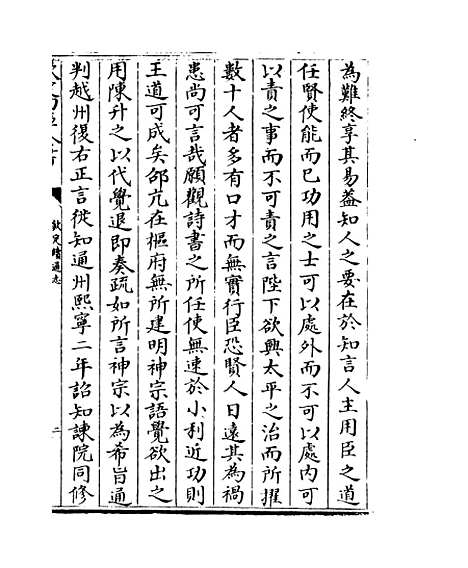 為難終享其易蓋知人之要在於知言人主用臣之道
任賢使能而已功用之士可以處外而不可以處内可
以責之事而不可責之言陛下欲興太平之治而所擢
數十人者多有口才而無實行臣恐賢人日遠其為禍
患尚可言哉願觀詩書之所任使無速於小利近功則
王道可成矣邵亢在樞府無所建明神宗語覺欲出之
用陳升之以代覺退即奏疏如所言神宗以為希旨通
判越州復右正言徙知通州熙寧二年詔知諫院同修
欽定續通志
二